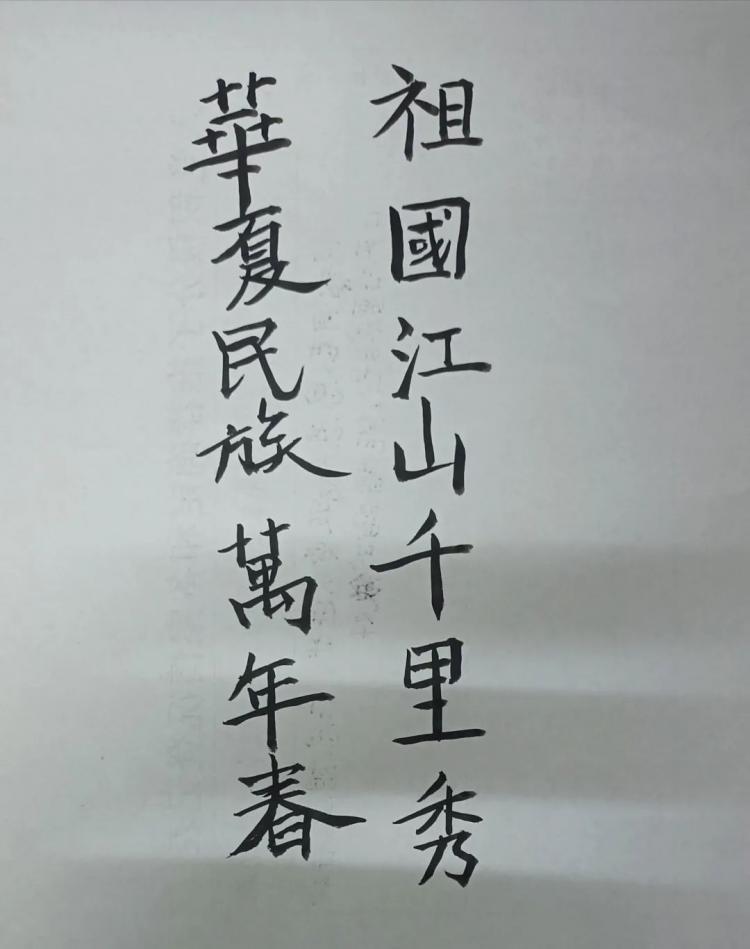 祖國江山千里秀
華夏民族萬年春